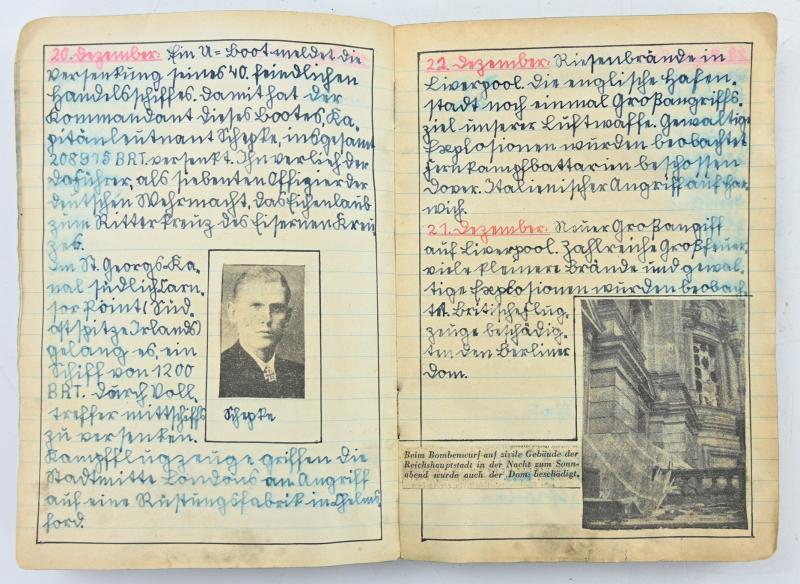 20. Dezember: Ein U=Boot meldet die
Versenkung seines 40. feindlichen
Handelsschiffes. Damit hat der
Kommandant dieses Bootes, Ka-
pitänleutnant Schepke, insgesamt
208975 BRT. versenkt. Ihn verlieh der
Führer, als siebenten Offizier der
deutschen Wehrmacht, das Eichenlaub
zum Ritterkreuz des Eisernen Kreu
zes.
Im St. Georgs-Ka-
nal südlich Carn-
sor Point (Süd-
ostspitze Irlands)
gelang es, ein
Schiff von 1200
BRT. durch Voll-
treffer mittschiffs
zu versenken.
Kampfflugzeuge griffen die
Stadtmitte Londons an. Angriff
auf eine Rüstungsfabrik in Chelms
ford.
Schepke
22. Dezember: Riesenbrände in
Liverpool. Die englische Hafen-
stadt noch einmal Großangriffs-
ziel unserer Luftwaffe. Gewaltige
Explosionen wurden beobachtet
Fernkampfbattarien beschossen
Dover. Italienischer Angriff auf Har-
wich.
21. Dezember: Neuer Großangriff
auf Liverpool. Zahlreiche Großfeuer,
viele kleinere Brände und gewal-
tige Explosionen wurden beobach-
tet. Britische Flug-
zeuge beschädig-
ten den Berliner
Dom.
Beim Bombenwurf auf zivile Gebäude der
Reichshauptstadt in der Nacht zum Sonn-
abend wurde auch der Dom beschädigt.